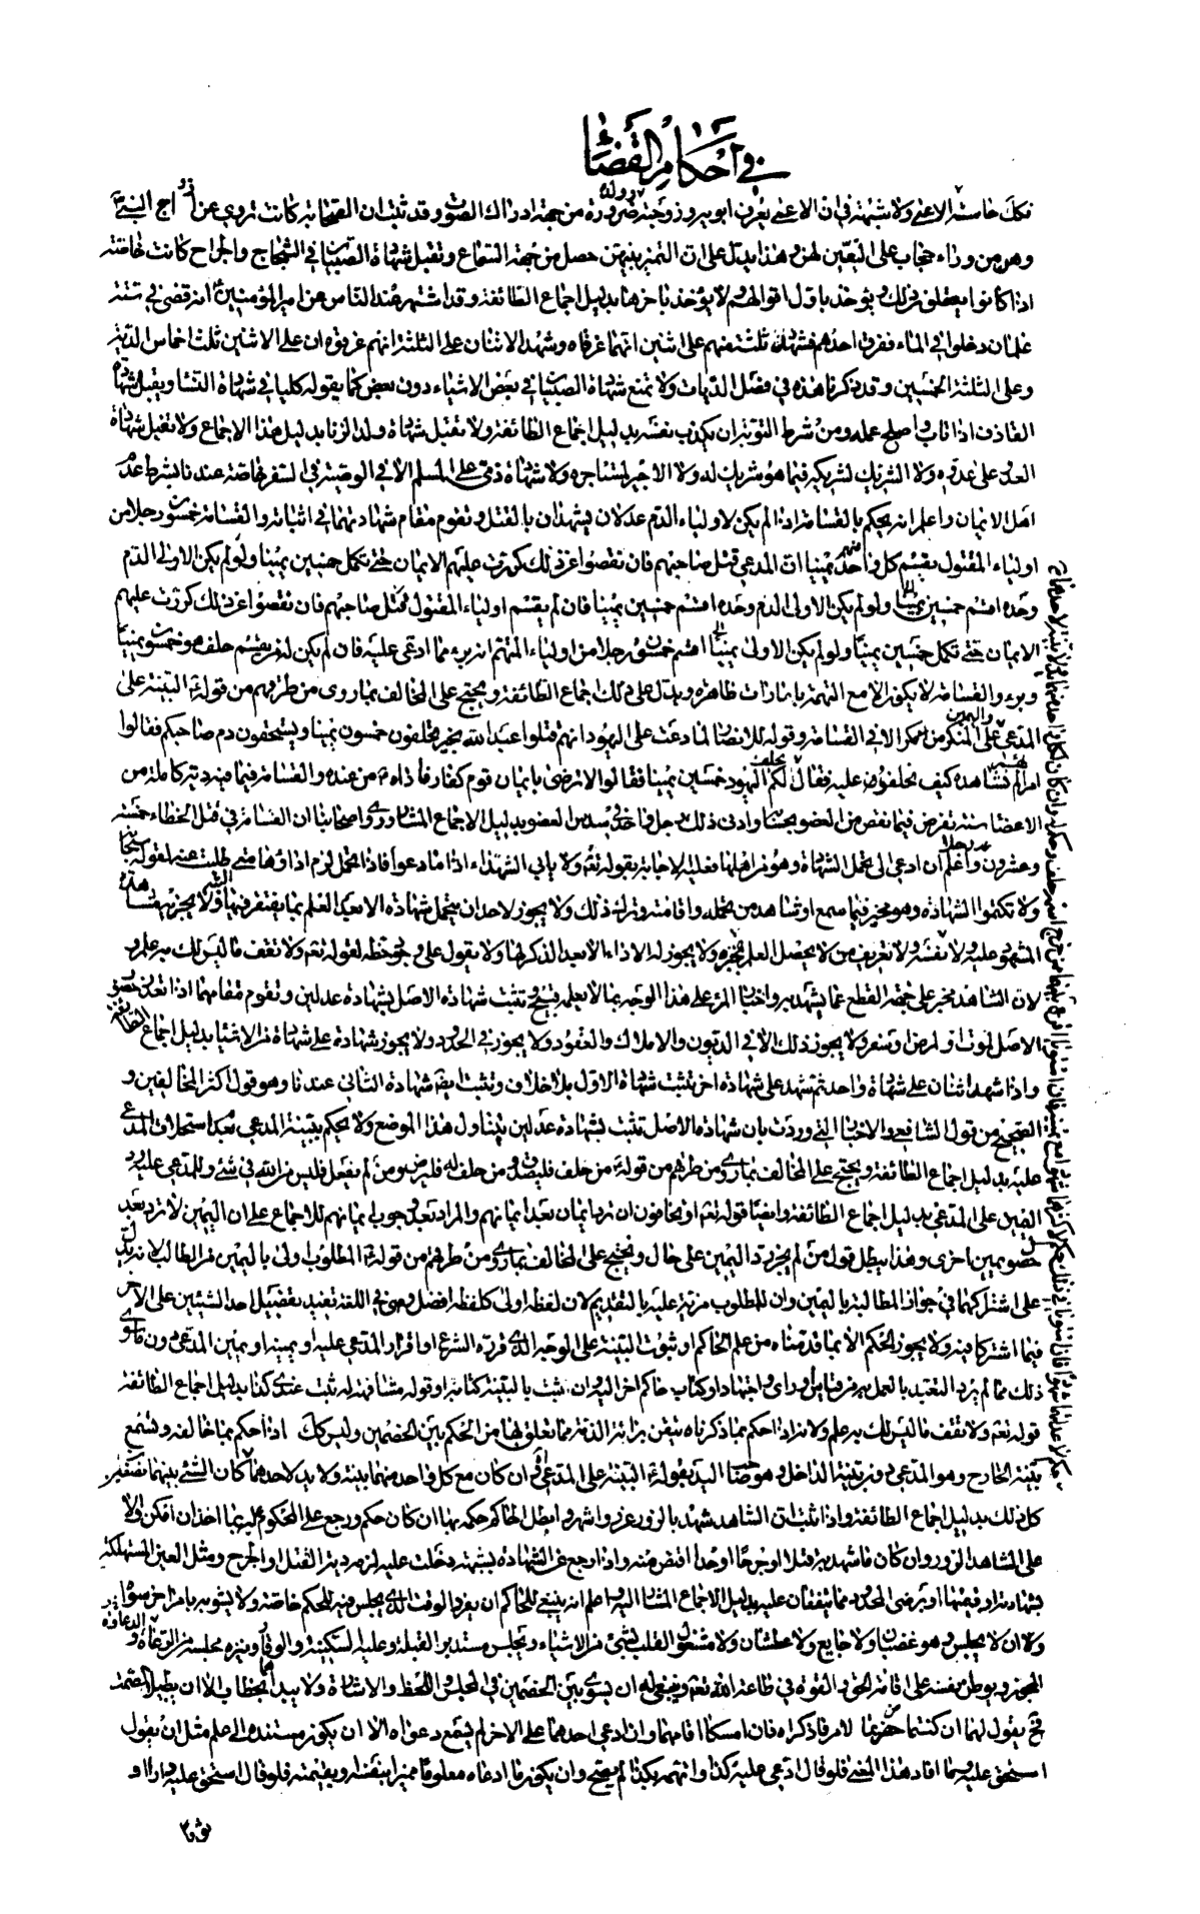 في أحكام القضاء
تلك حاسته الاعمى ولا شبهة في ان الاعمى يعرف ابويه وزوجته وولده ضرورة من جهة ادراك الصوت وقد ثبت ان الصحابة كانت تروي عن ازواج النبي
وهن من وراء حجاب على التعيين لهن وهذا يدل على ان التميز بينهن حصل من جهة السماع وتقبل شهادة الصبيان في الشجاج والجراح خاصة
اذا كانوا يعقلون ذلك ويؤخذ باول اقوالهم ولا يؤخذ باخرها بدليل اجماع الطائفة وقد اشتهر عند الناس عن امير المؤمنين انه قضى في ستة
غلمان دخلوا في الماء فغرق احدهم فشهد ثلثة منهم على اثنين انهما غرقاه وشهد الاثنان على الثلثة انهم غرقوه ان على الاثنين ثلث اخماس الدية
وعلى الثلثة الخمسين وقد ذكرنا هذه في فصل الديات ولا تمنع شهادة الصبيان في بعض الاشياء دون بعض كما يقوله كلنا في شهادة النساء ويقبل شهادة
القاذف اذا تاب واصلح عمله ومن شرط التوبة ان يكذب نفسه بدليل اجماع الطائفة ولا تقبل شهادة ولد الزنا بدليل هذا الاجماع ولا تقبل شهادة
العدو على عدوه ولا الشريك لشريكه فيما هو شريك له ولا الاجير لمستاجره ولا شهادة ذمي على المسلم الا في الوصية في السفر خاصة عندنا بشرط عدم
اهل الايمان واعلم انه يحكم بالقسامة اذا لم يكن لاولياء الدم عدلان يشهدان بالقتل وتقوم مقام شهادتهما في اثباته والقسامة خمسون رجلا من
اولياء المقتول يقسم كل واحد منهم يمينا ان المدعى قتل صاحبهم فان نقصوا عن ذلك كررت عليهم الايمان حتى تكمل خمسين يمينا ولو لم يكن الا ولي الدم
وحده اقسم خمسين يمينا فان لم يقسم اولياء المقتول
الايمان حتى تكمل خمسين يمينا اقسم خمسون رجلا من اولياء المتهم انه بريء مما ادعى عليه فان لم يكن له من يقسم حلف هو خمسين يمينا
وبرء والقسامة لا يكون الا مع التهمة بامارات ظاهرة ويدل على ذلك اجماع الطائفة ويحتج على المخالف بما روى من طرقهم من قوله البينة على
المدعي واليمين على المنكر الا في القسامة وقوله للانصار لما ادعت على اليهود انهم قتلوا عبد الله بخيبر يحلفون خمسون يمينا ويستحقون دم صاحبكم فقالوا
امر لم نشاهده كيف نحلف عليه فقال يحلف لكم اليهود خمسين يمينا فقالوا لا نرضى بايمان قوم كفار فاداه من عنده والقسامة فيما فيه دية كاملة من
الاعضاء ستة نفر
وعشرون رجلا واعلم ان من دعي الى تحمل الشهادة وهو من اهلها فعليه الاجابة بقوله تعالى ولا ياب الشهداء اذا ما دعوا فاذا تحمل لزم اداؤها متى طلبت منه لقوله سبحانه
ولا تكتموا الشهادة وهو مخير فيما سمع او شاهد من تحمله واقامته وترك ذلك ولا يجوز لاحد ان يتحمل شهادة الا بعد العلم بما يفتقر فيها
المشهود عليه ولا تعريف من لا يحصل العلم بخبره ولا يجوز له الاداء الا بعد الذكر لها ولا يعول على وجود خطه لقوله تعالى ولا تقف ما ليس لك به علم و
لان الشاهد مخبر على جهة القطع بما يشهد به واخبار المرء على هذا الوجه بما لا يعلمه قبيح وتثبت شهادة الاصل بشهادة عدلين وتقوم مقامها اذا تعذر حضور
الاصل لموت او لمرض او سفر ولا يجوز ذلك الا في الديون والاملاك والعقود ولا يجوز في الحدود ولا يجوز شهادة على شهادة
واذا شهد اثنان على شهادة واحد ثم شهدا على شهادة اخر تثبت شهادة الاول بلا خلاف وتثبت ايضا شهادة الثاني عندنا وهو قول اكثر المخالفين و
الصحيح من قول الشافعي والاخبار التي وردت بان شهادة الاصل تثبت بشهادة عدلين يتناول هذا الموضع ولا يحكم ببينة المدعي بعد استحلاف المدعى
عليه بدليل اجماع الطائفة ويحتج على المخالف بما روي من طرقهم من قوله من حلف فليصدق ومن حلف له فليرض ومن لم يفعل فليس من الله في شيء وللمدعى عليه رد
اليمين على المدعي بدليل اجماع الطائفة وايضا قوله تعالى او يخافون ان ترد ايمان بعد ايمانهم والمراد بعد وجوب ايمانهم للاجماع على ان اليمين لا ترد بعد
حصول يمين اخرى وهذا يبطل قول من لم يجز رد اليمين على حال ويحتج على المخالف بما روي من طرقهم من قوله المطلوب اولى باليمين من الطالب لانه يدل
على اشتراكهما في جواز المطالبة باليمين وان للمطلوب مزية عليه بالتقديم لان لفظة اولى كلفظة افضل وهو في اللغة تفيد تفضيل احد الشيئين على الاخر
فيما اشتركا فيه ولا يجوز الحكم الا بما قدمناه من علم الحاكم او ثبوت البينة على الوجه الذي قرره الشرع او اقرار المدعى عليه او يمينه او يمين المدعي دون ما سوى
ذلك مما لم يرد التعبد بالعمل به من قياس او راي واجتهاد او كتاب حاكم اخر اليه وان ثبت بالبينة كتابه او قوله مشافهة له ثبت عندي كذا بدليل اجماع الطائفة
قوله تعالى ولا تقف ما ليس لك به علم ولانه اذا حكم بما ذكرناه تيقن براءة الذمة مما تعلق بها من الحكم بين الخصمين وليس كك اذا حكم بما خالفه وتسمع
بينة الخارج وهو المدعي دون بينة الداخل وهو صاحب اليد بقوله البينة على المدعي فان كان مع كل واحد منهما بينة ولا يد لاحدهما كان الشيء بينهما نصفين
كل ذلك بدليل اجماع الطائفة واذا ثبت ان الشاهد شهد بالزور عزر واشهر وابطل الحاكم حكمه بها ان كان حكم ورجع على المحكوم له بما اخذ ان امكن والا
على الشاهد الزور وان كان ما شهد به قتلا او جرحا او حدا اقتص منه واذا رجع عن الشهادة بشبهة دخلت عليه لزمه دية القتل او الجرح ومثل العين المستهلكة
بشهادته او قيمتها او يرضى المحدود بما يتفقان عليه بدليل الاجماع المشار اليه واعلم انه ينبغي للحاكم ان يفرد الوقت الذي يجلس فيه للحكم خاصة ولا يشوبه بامر اخر سواه
ولا ان لا يجلس وهو غضبان ولا جايع ولا عطشان ولا مشغول القلب بشيء من الاشياء ويجلس مستدبر القبلة وعليه السكينة والوقار وينزه مجلسه
ويوطن نفسه على اقامة الحق والقوة في طاعة الله تعالى وينبغي له ان يسوي بين الخصمين في المجلس واللحظ والاشارة ولا يبدأهما بخطاب الا ان يطيلا الصمت
فح يقول لهما ان كنتما حضرتما لامر فاذكراه فان امسكا اقامهما وان ادعى احدهما على الاخر لم يسمع دعواه الا ان يكون مستندة الى علم مثل ان يقول
استحق عليه وما افاد هذا المعنى فلو قال ادعى عليه كذا واتهمه بكذا لم يصح وان يكون ما ادعاه معلوما متميزا بنفسه وبقيمته فلو قال استحق عليه دارا او